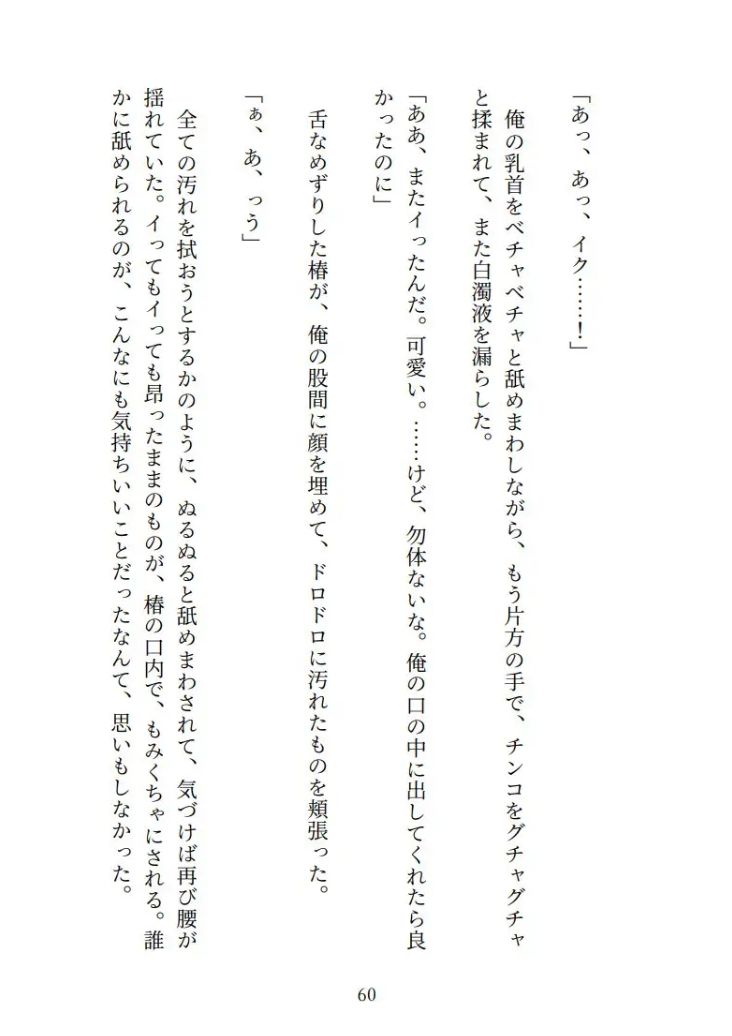 「あっ、あっ、イク……！」
俺の乳首をベチャベチャと舐めまわしながら、もう片方の手で、チンコをグチャグチャ
と揉まれて、また白濁液を漏らした。
「ああ、またイったんだ。可愛い。……けど、勿体ないな。俺の口の中に出してくれたら良
かったのに」
舌なめずりした椿が、俺の股間に顔を埋めて、ドロドロに汚れたものを頬張った。
「ぁ、あ、っう」
全ての汚れを拭おうとするかのように、ぬるぬると舐めまわされて、気づけば再び腰が
揺れていた。イってもイっても昂ったままのものが、椿の口内で、もみくちゃにされる。誰
かに舐められるのが、こんなにも気持ちいいことだったなんて、思いもしなかった。
60